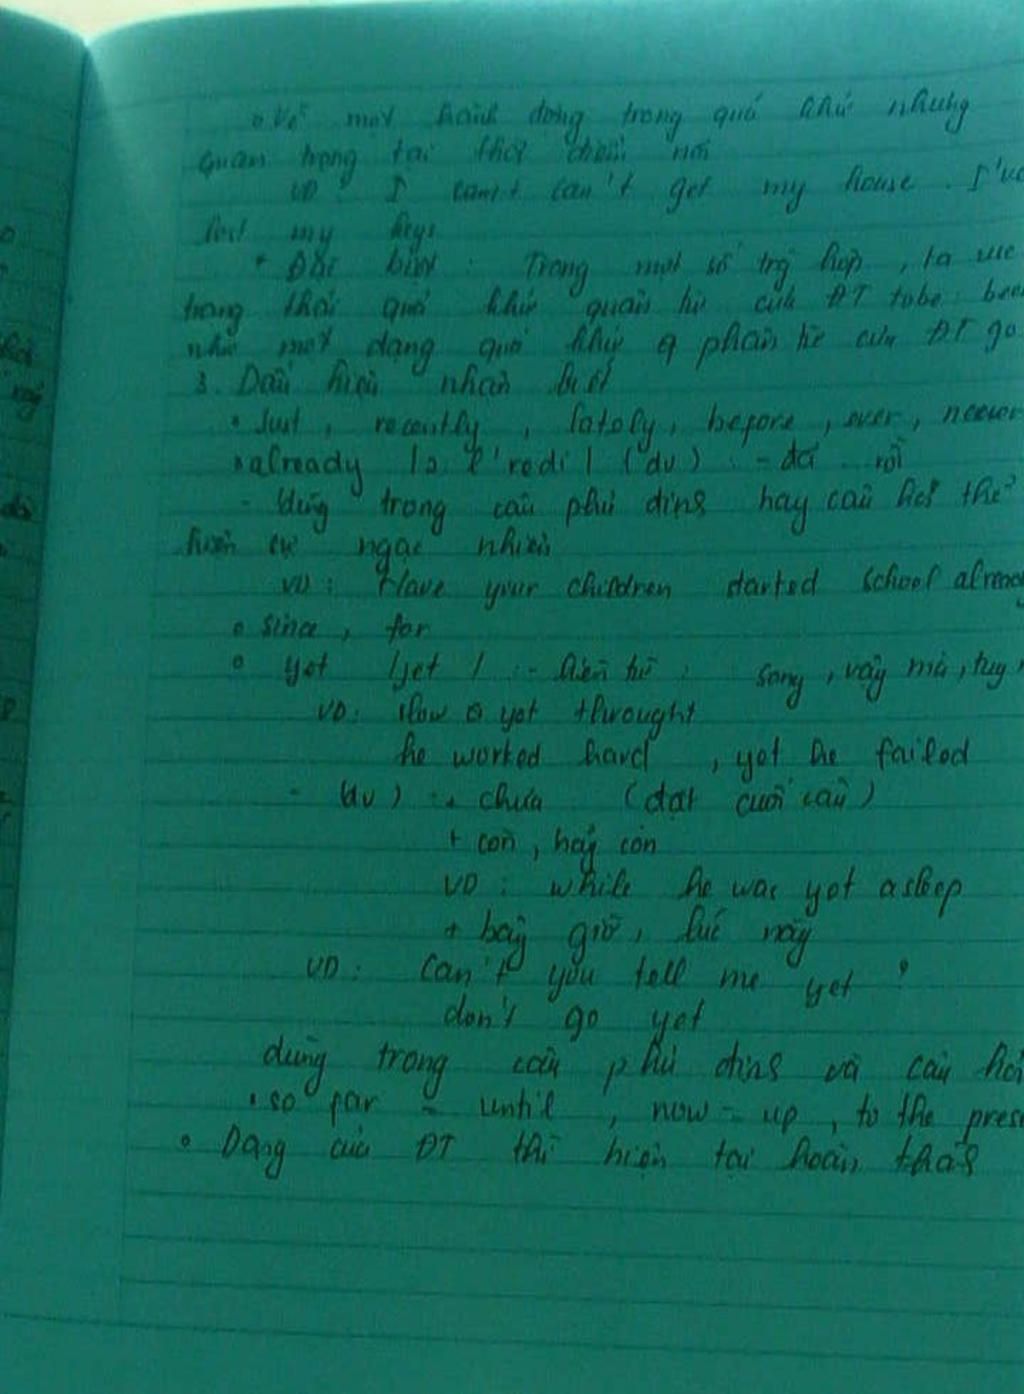 • Về một hành động trong quá khứ nhưng
quan trọng tại thời điểm nói
VD: I can't get my house. I've
lost my keys
* Đặc biệt: Trong một số trg hợp, ta
trạng thái quá khứ quán từ của ĐT tobe: been
như một dạng quá khứ q phân từ của ĐT go
3. Dấu hiệu nhận biết
• Just, recently, lately, before, ever, neever
• already (dv) - đã rồi
- dùng trong câu phủ định hay câu hỏi thể
hiện sự ngạc nhiên
VD: Have your children started school already
• since, for
• yet /jet/ - liên từ: song, vậy mà, tuy
VD: yet throught
he worked hard, yet he failed
- (dv) + chưa (đặt cuối câu)
+ còn, hãy còn
VD: while he was yet asleep
+ bây giờ, lúc này
VD: Can't you tell me yet?
don't go yet
dùng trong câu phủ định và câu hỏi
• so far - until, now - up, to the prese
• Dạng của ĐT thì hiện tại hoàn thành